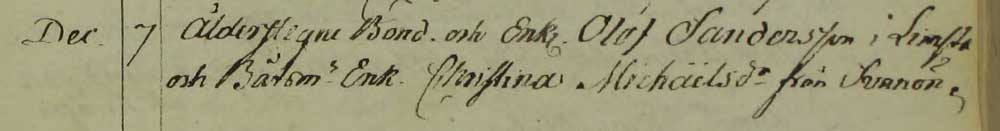 Dec. 7 Ålderstegne Bond. och Enkl. Olof Sandersson i Limsta
och Båtsm:s Enk. Christina Michäelsd:r från Svanön,